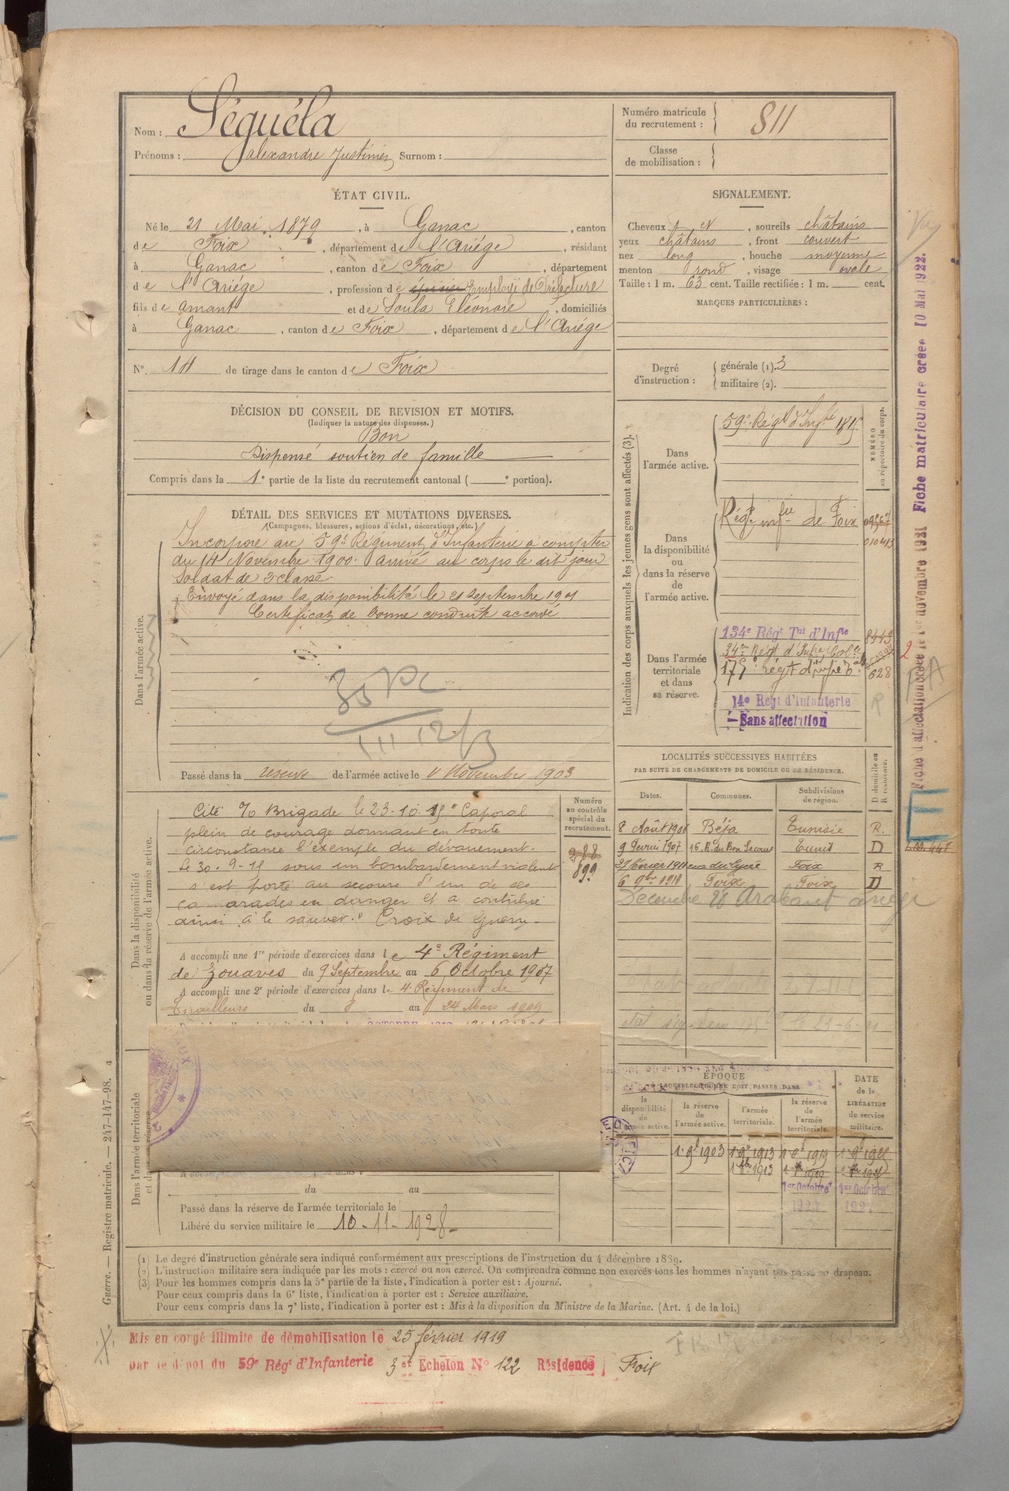 Nom : Séguéla
Prénoms : Alexandre Justinien Surnom :
Numéro matricule du recrutement : 811
Classe de mobilisation :
ÉTAT CIVIL.
Né le 21 Mai 1879, à Ganac, canton
de Foix, département de l'Ariège, résidant
à Ganac, canton de Foix, département
de l'Ariège, profession de Employé de Préfecture
fils de Amant et de Soula Eléonore, domiciliés
à Ganac, canton de Foix, département de l'Ariège
N°. 14 de tirage dans le canton de Foix
SIGNALEMENT.
Cheveux et, sourcils châtains
yeux châtains, front couvert
nez long, bouche moyenne
menton rond, visage ovale
Taille : 1 m. 63 cent. Taille rectifiée : 1 m. cent.
MARQUES PARTICULIÈRES :
Degré d'instruction : générale (1). 3
militaire (2).
DÉCISION DU CONSEIL DE REVISION ET MOTIFS.
(Indiquer la nature des dispenses.)
Bon
Dispensé soutien de famille
Compris dans la 1e partie de la liste du recrutement cantonal ( e portion).
DÉTAIL DES SERVICES ET MUTATIONS DIVERSES.
(Campagnes, blessures, actions d'éclat, décorations, etc.)
Dans l'armée active.
Incorporé au 59e Régiment d'Infanterie à compter
du 14 Novembre 1900. Arrivé au corps le dit jour
Soldat de 2e classe
Envoyé dans la disponibilité le 21 Septembre 1901
Certificat de bonne conduite accordé
Passé dans la réserve de l'armée active le 1 Novembre 1903
Indication des corps auxquels les jeunes gens sont affectés (3).
NUMÉRO au répertoire du corps.
Dans l'armée active.
59e Régt d'Infie
Dans la disponibilité ou dans la réserve de l'armée active.
Régt infie de Foix
Dans l'armée territoriale et dans sa réserve.
134e Régt Tal d'Infie
34e Régt d'Infie Colle
628
14e Régt d'Infanterie
Sans affectation
R
LOCALITÉS SUCCESSIVES HABITÉES
PAR SUITE DE CHANGEMENTS DE DOMICILE OU DE RÉSIDENCE.
Dates. Communes. Subdivisions de région. D domicile ou R résidence.
8 Août Béja Tunisie R.
9 février 1907 Tunis D
Foix R
Foix Foix D
Dans la disponibilité ou dans la réserve de l'armée active.
Numéro au contrôle spécial du recrutement.
288
899
Cité Brigade le 23-10-18 " Caporal
plein de courage donnant en toute
circonstance l'exemple du dévouement.
Le 30-9-18 sous un bombardement violent
s'est porté au secours d'un de ses
camarades en danger et a contribué
ainsi à le sauver." Croix de Guerre.
A accompli une 1re période d'exercices dans le 4e Régiment
de Zouaves du 9 Septembre au 6 Octobre 1907
A accompli une 2e période d'exercices dans le 4e Régiment de
Tirailleurs du 8 au 24 Mars 1909
ÉPOQUE
DATE de la LIBÉRATION du service militaire.
la disponibilité de l'armée active. la réserve de l'armée active. l'armée territoriale. la réserve de l'armée territoriale.
Dans l'armée territoriale
du au
Passé dans la réserve de l'armée territoriale le
Libéré du service militaire le 10-11-1928
(1) Le degré d'instruction générale sera indiqué conformément aux prescriptions de l'instruction du 4 décembre 1889.
(2) L'instruction militaire sera indiquée par les mots : exercé ou non exercé. On comprendra comme non exercés tous les hommes n'ayant pas passé au drapeau.
(3) Pour les hommes compris dans la 5e partie de la liste, l'indication à porter est : Ajourné.
Pour ceux compris dans la 6e liste, l'indication à porter est : Service auxiliaire.
Pour ceux compris dans la 7e liste, l'indication à porter est : Mis à la disposition du Ministre de la Marine. (Art. 4 de la loi.)
Mis en congé illimité de démobilisation le 25 février 1919
Par le dépôt du 59e Régt d'Infanterie 3e Echelon N° 122 Résidence Foix
Guerre. — Registre matricule. — 247-147-98.
Fiche matriculaire créée 10 Mai 1922.
novembre 1921